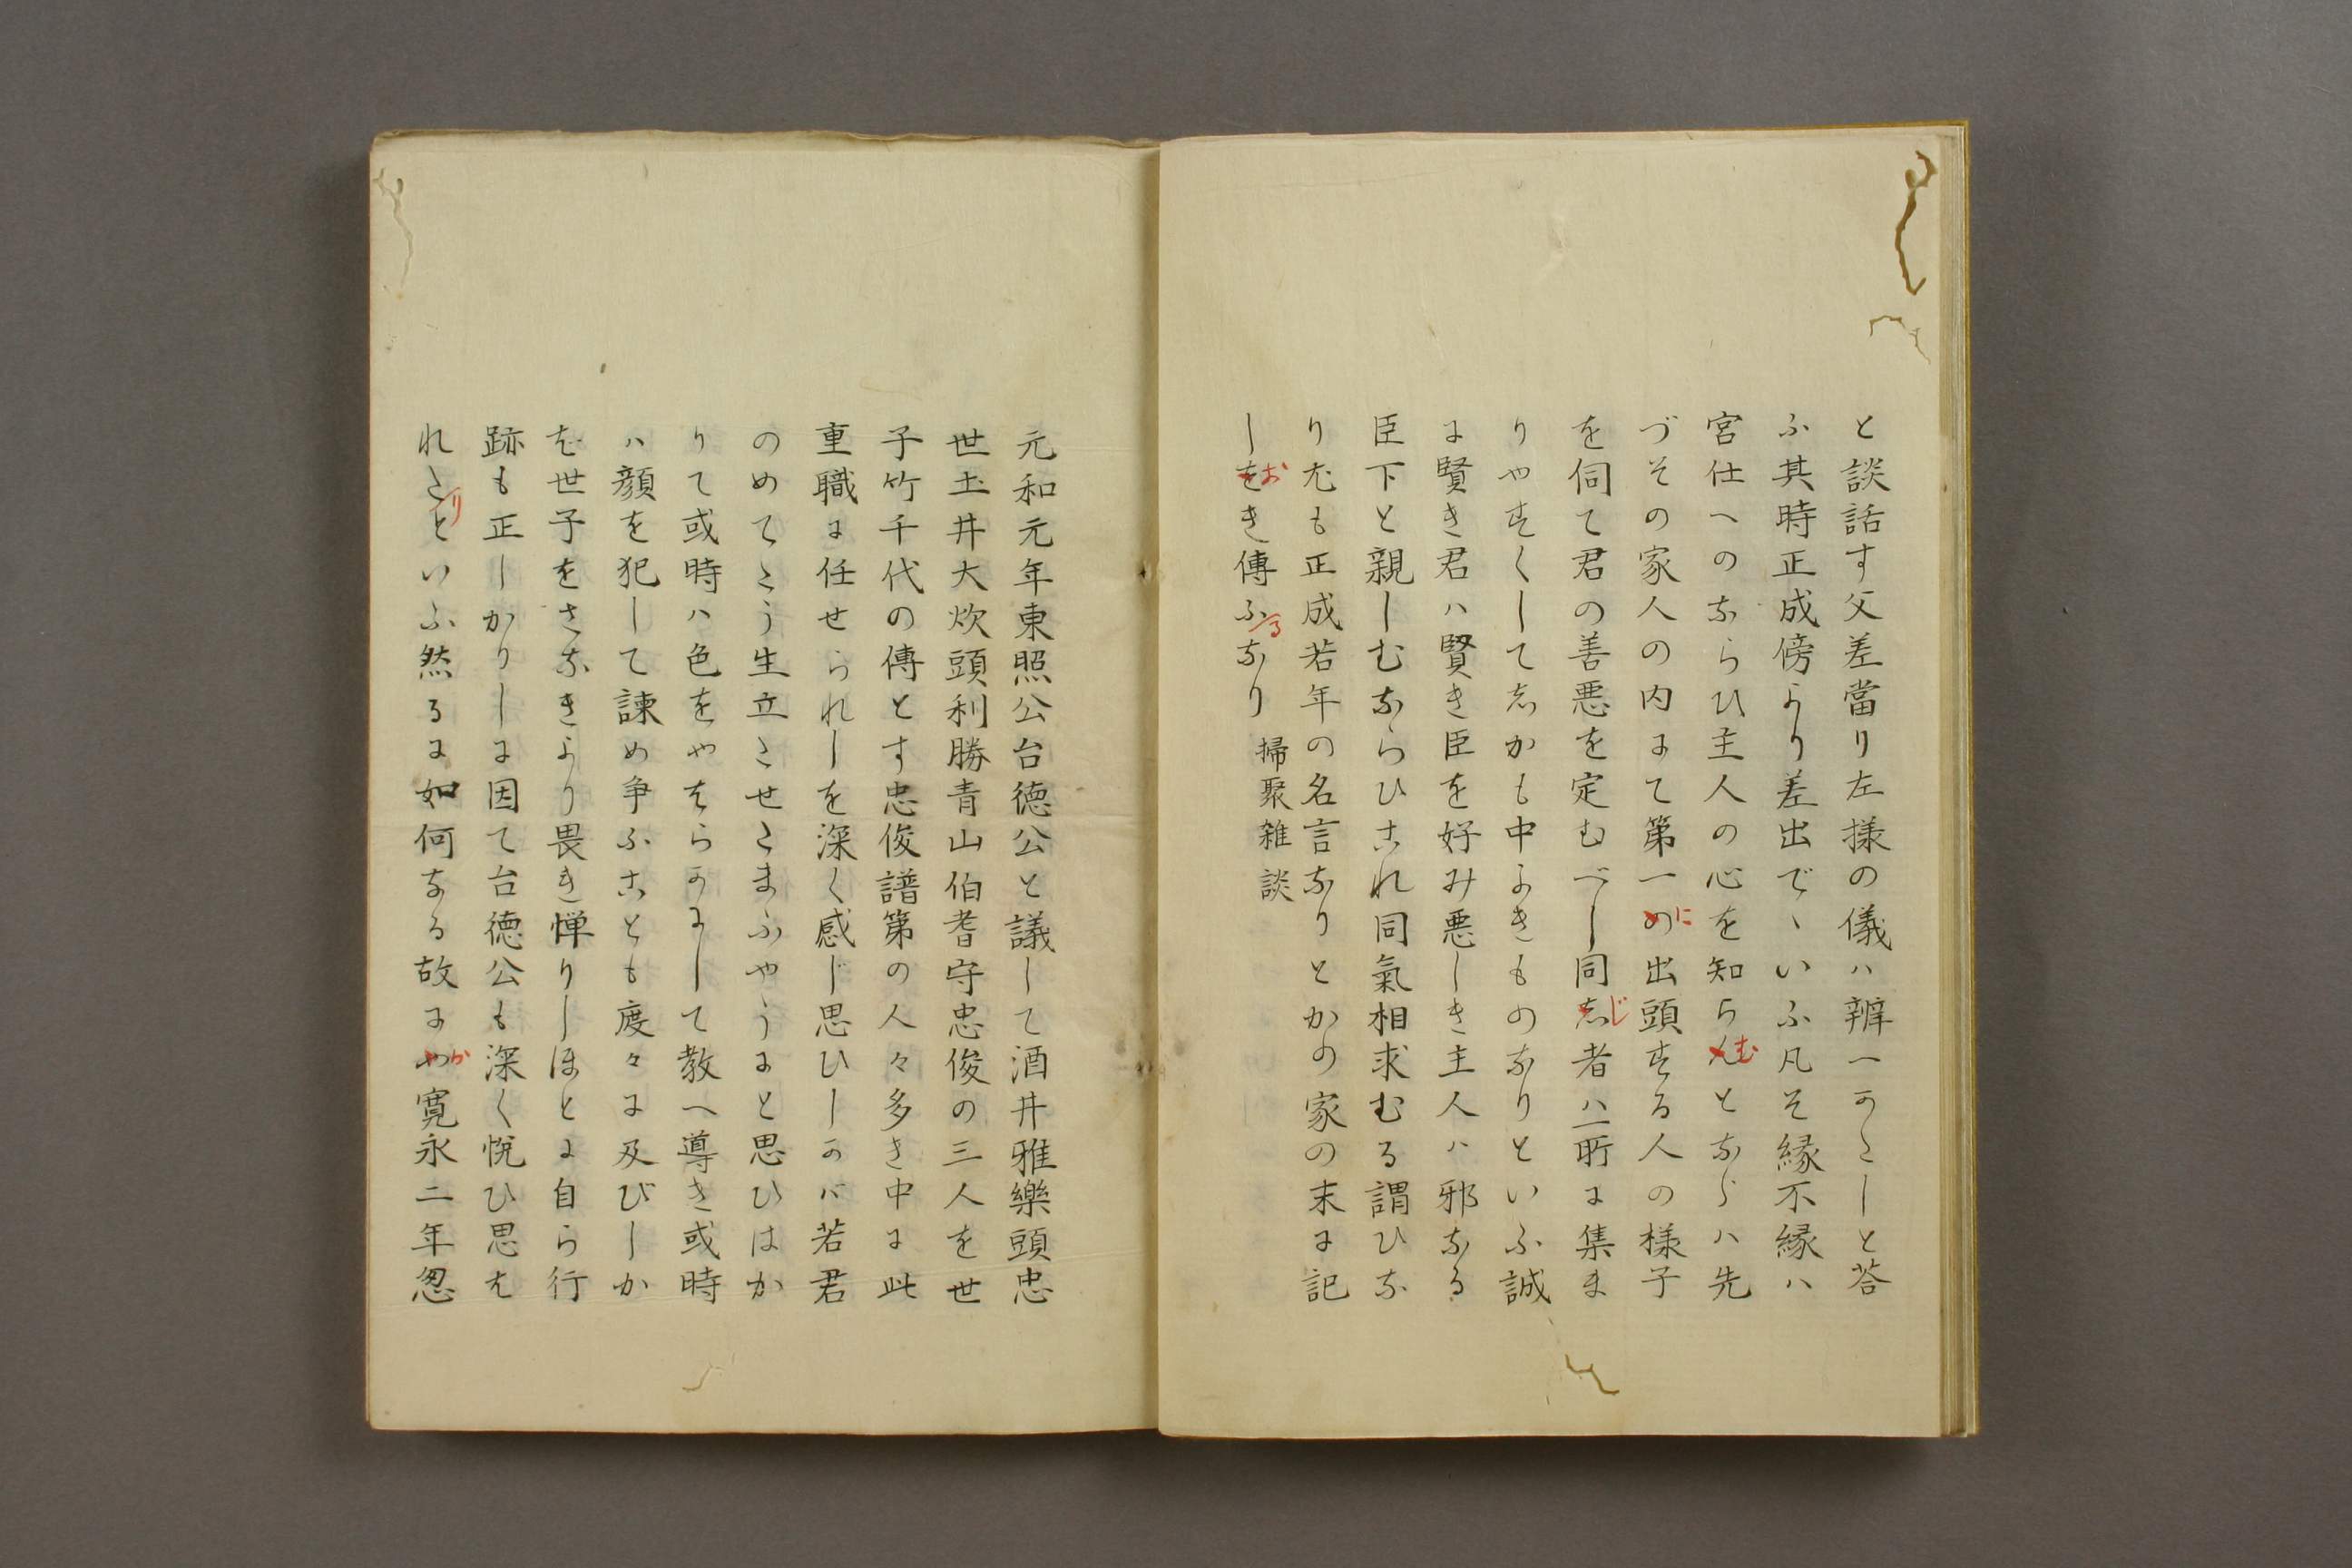 と談話す父差當り左様の儀ハ辨へかたしと答
ふ其時正成傍より差出でゝいふ凡そ縁不縁ハ
宮仕へのならひ主人の心を知らんむとならハ先
づその家人の内にて第一のに出頭する人の様子
を伺て君の善悪を定むべし同志じ者ハ一所に集ま
りやすくしてしかも中よきものなりといふ誠
に賢き君ハ賢き臣を好み悪しき主人ハ邪なる
臣下と親しむならひこれ同氣相求むる謂ひな
り尤も正成若年の名言なりとかの家の末に記
しをおき傳ふるなり 掃聚雑談
元和元年東照公台徳公と議して酒井雅樂頭忠
世土井大炊頭利勝青山伯耆守忠俊の三人を世
子竹千代の傅とす忠俊譜第の人々多き中に此
重職に任せられしを深く感じ思ひしかバ若君
のめてたう生立たせたまふやうにと思ひはか
りて或時ハ色をやはらかにして教へ導き或時
ハ顔を犯して諫め争ふことも度々に及びしか
ば世子をさなきより畏き憚りしほとに自ら行
跡も正しかりしに因て台徳公も深く悦ひ思は
れたりといふ然るに如何なる故にやか寛永二年忽